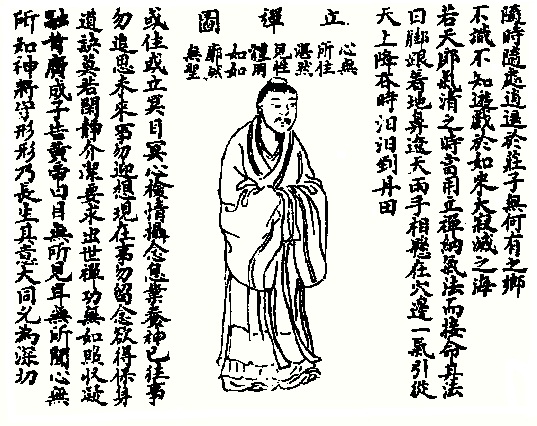 立禪圖
隨時隨處逍遙於莊子無何有之鄉
不識不知遊戲於如來大寂滅之海
若天朗氣清之時當用立禪納氣法而接命其法
曰脚跟着地鼻遼天兩手相懸在穴邊一氣引從
天上降吞時汩汩到丹田
心無
所住
湛然
見性
體用
如如
廓然
無聖
或住或立冥目冥心檢情攝念息業養神已往事
勿追思未來事勿迎想現在事勿留念欲得保身
道訣莫若閑靜介潔要求出世禪功無如照收凝
融昔廣成子告黃帝曰目無所見耳無所聞心無
所知神將守形形乃長生其意大同尤為深切